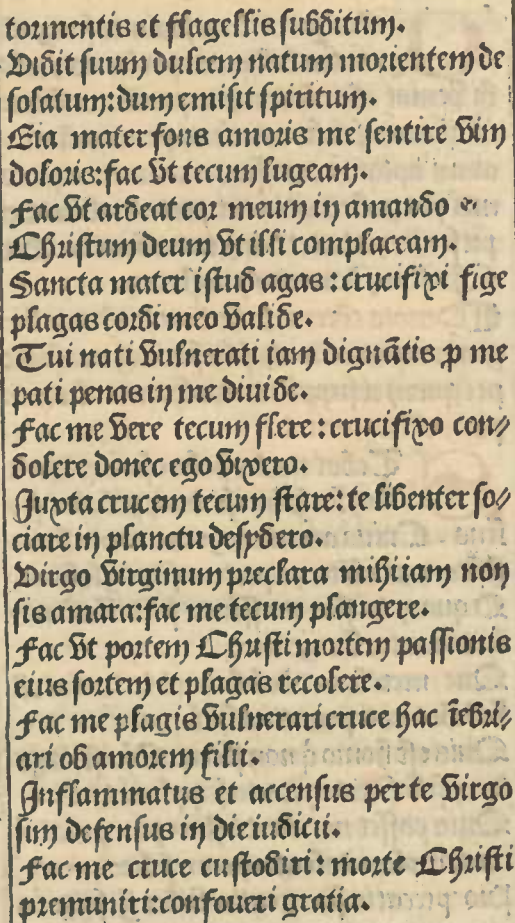 tormentis et flagellis subditum.
Vidit suum dulcem natum morientem de
solatum: dum emisit spiritum.
Eia mater fons amoris me sentire vim
doloris: fac vt tecum lugeam.
Fac vt ardeat cor meum in amando
Christum deum vt illi complaceam.
Sancta mater istud agas: crucifixi fige
plagas cordi meo valide.
Tui nati vulnerati iam dignātis ꝓ me
pati penas in me diuide.
Fac me vere tecum flere: crucifixo con⸗
dolere donec ego vixero.
Juxta crucem tecum stare: te libenter so⸗
ciare in planctu desydero.
Virgo virginum preclara mihi iam non
sis amara: fac me tecum plangere.
Fac vt portem Christi mortem passionis
eius sortem et plagas recolere.
Fac me plagis vulnerari cruce hac īebri⸗
ari ob amorem filii.
Inflammatus et accensus per te virgo
sim defensus in die iudicii.
Fac me cruce custodiri: morte Christi
premuniri: confoueri gratia.